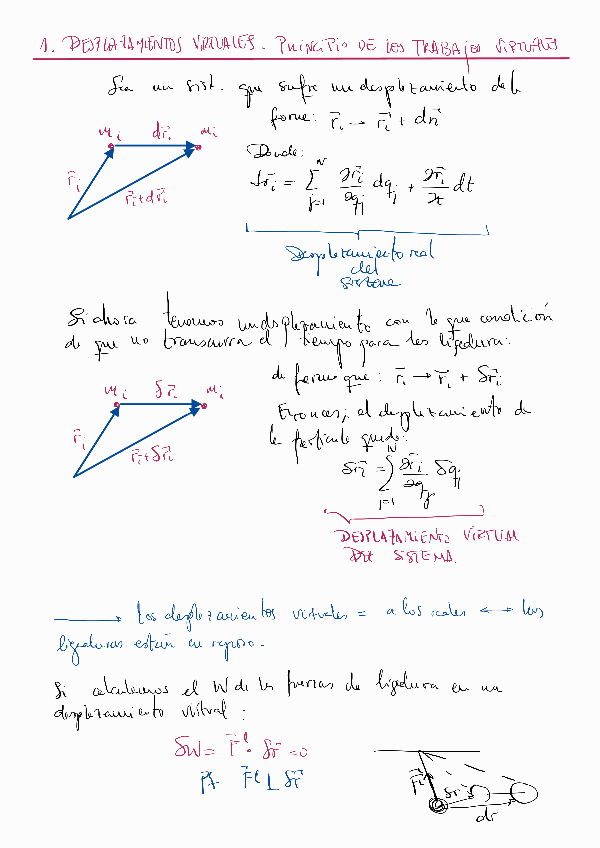 1. DESPLAZAMIENTOS VIRTUALES. PRINCIPIO DE LOS TRABAJOS VIRTUALES
Sea un sist. que sufre un desplazamiento de la
forma: r⃗i → r⃗i + dr⃗i
mi dr⃗i mi
r⃗i
r⃗i+dr⃗i
Donde:
dr⃗i = Σ_{j=1}^{N} ∂r⃗i/∂qj dqj + ∂r⃗i/∂t dt
Desplazamiento real
del
sistema
Si ahora tenemos un desplazamiento con la que condición
de que no transcurra el tiempo para las ligaduras:
de forma que: r⃗i → r⃗i + δr⃗i
mi δr⃗i mi
r⃗i
r⃗i+δr⃗i
Entonces, el desplazamiento de
la partícula queda:
δr⃗i = Σ_{j=1}^{N} ∂r⃗i/∂qj δqj
DESPLAZAMIENTO VIRTUAL
DEL SISTEMA.
→ Los desplazamientos virtuales = a los reales ↔ las
ligaduras están en reposo.
Si calculamos el W de las fuerzas de ligadura en un
desplazamiento virtual:
δW = F⃗ˡ · δr⃗ = 0
F⃗ˡ ⊥ δr⃗
F⃗ˡ
δr⃗
dr